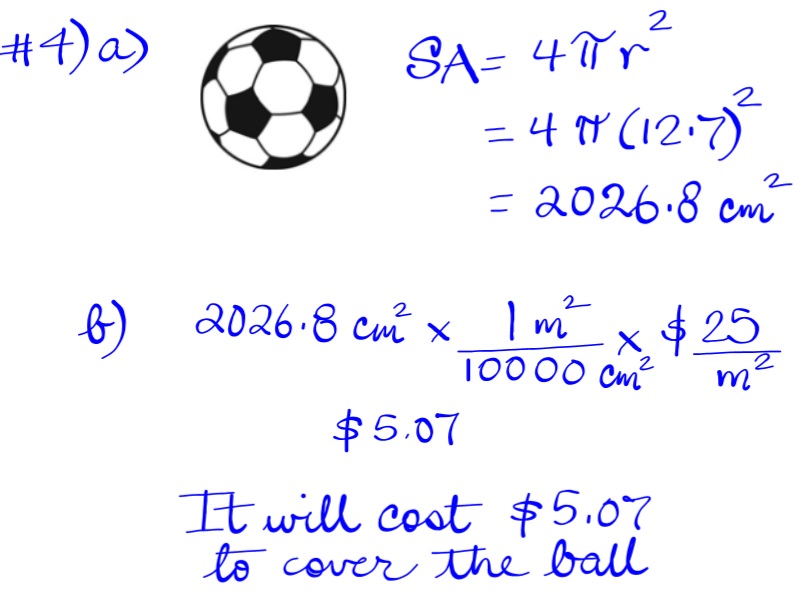 #4) a) SA = 4πr²
= 4π(12.7)²
= 2026.8 cm²
b) 2026.8 cm² × 1 m²/10000 cm² × $25/m²
$5.07
It will cost $5.07
to cover the ball